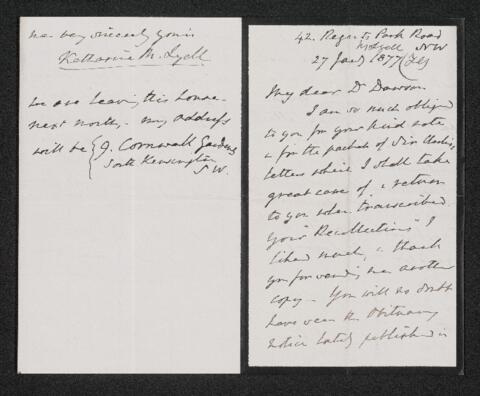 42. Regents Park Road
NW
27 Jany 1877
My dear Dr Dawson.
I am so much obliged
to you for your kind note
& for the packet of Sir Charles'
letters which I shall take
great care of & return
to you when transcribed
Your "Recollections" I
liked much, & thank
you for sending me another
copy - You will no doubt
have seen the Obituary
notice lately published in
me very sincerely yours
Katharine M. Lyell
We are leaving this house
next month. - my address
will be { 9. Cornwall Gardens
South Kensington
S.W.